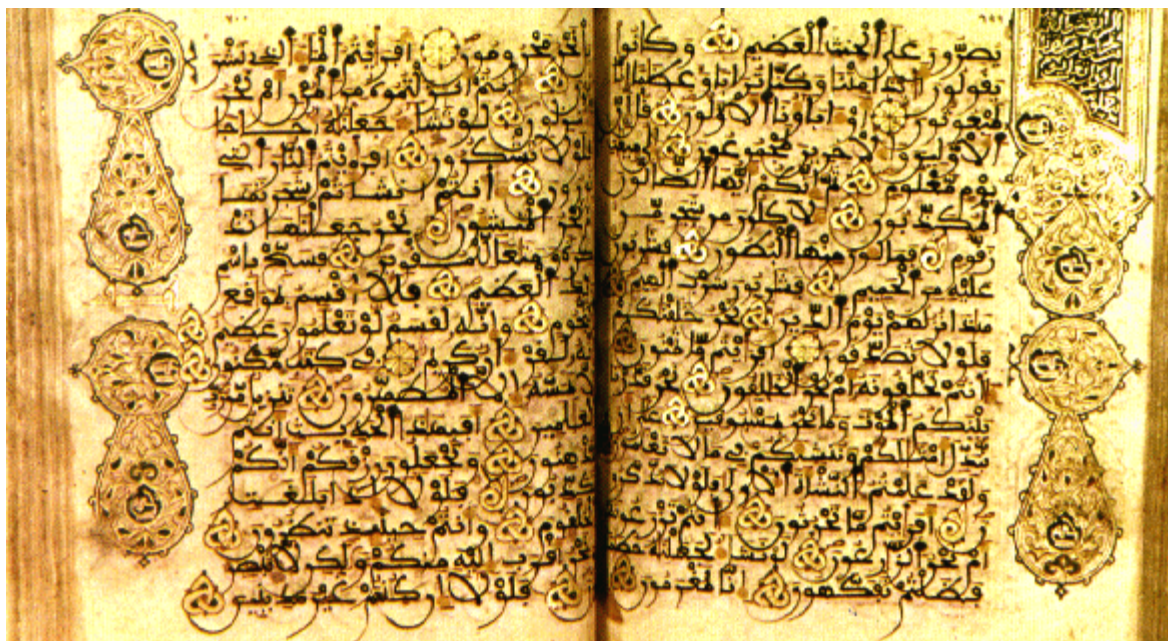 ٦٩٩
يصرون على الحنث العظيم وكانوا
يقولون ائذا متنا وكنا ترابا وعظاما انا
لمبعوثون او اباونا الاولون قل ان
الاولين والاخرين لمجموعون الى ميقت
يوم معلوم ثم انكم ايها الضالون
المكذبون لاكلون من شجر من
زقوم فمالون منها البطون فشربون
عليه من الحميم فشربون شرب الهيم
هذا نزلهم يوم الدين نحن خلقنكم
فلولا تصدقون افريتم ما تمنون
انتم تخلقونه ام نحن الخلقون نحن قدرنا
بينكم الموت وما نحن بمسبوقين على ان
نبدل امثلكم وننشيكم في ما لا تعلمون
ولقد علمتم النشاة الاولى فلولا تذكرون
افريتم ما تحرثون انتم تزرعونه
ام نحن الزرعون لو نشا لجعلنه حطما
فظلتم تفكهون انا لمغرمون
٧٠٠
بل نحن محرومون افريتم الما الذي تشر
بون انتم انزلتموه من المزن ام نحن
المنزلون لو نشا جعلنه اجاجا
فلولا تشكرون افريتم النار التي
تورون انتم انشاتم شجرتها
ام نحن المنشون نحن جعلنها تذ
كرة ومتعا للمقوين فسبح باسم
ربك العظيم فلا اقسم بموقع
النجوم وانه لقسم لو تعلمون عظيم
انه لقران كريم في كتب مكنون
لا يمسه الا المطهرون تنزيل من رب
العلمين افبهذا الحديث انتم
مدهنون وتجعلون رزقكم انكم
تكذبون فلولا اذا بلغت
الحلقوم وانتم حينئذ تنظرون
ونحن اقرب اليه منكم ولكن لا تبصر
ون فلولا ان كنتم غير مدينين